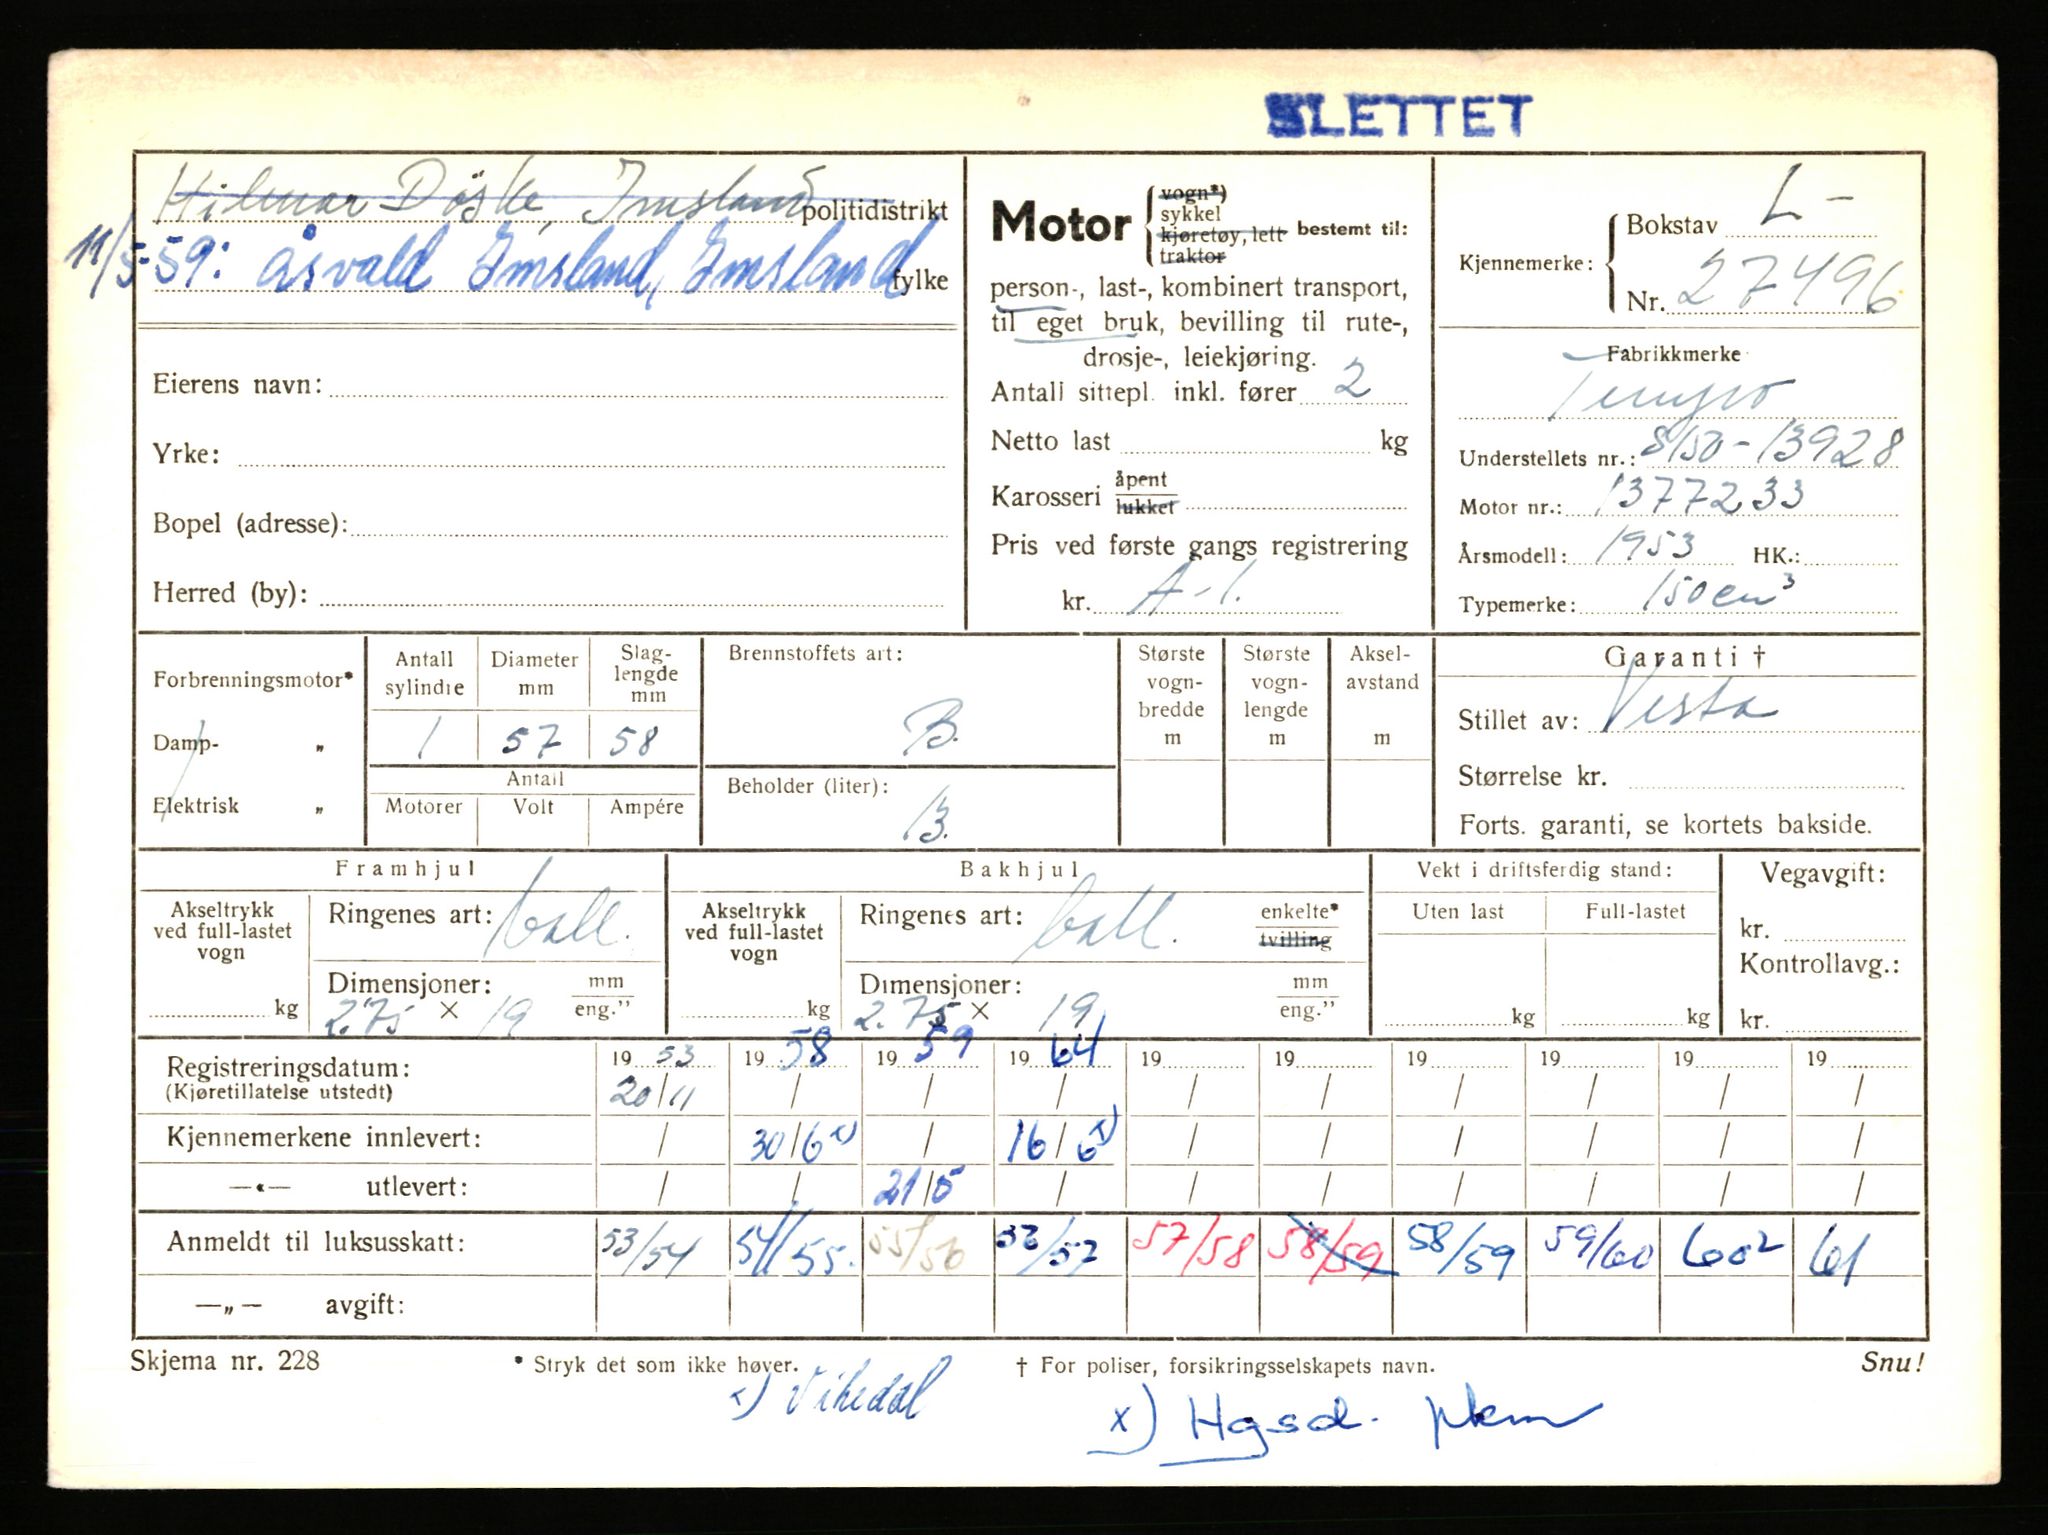 SLETTET
Hilmar Döske, Imsland politidistrikt
11/5-59: Åsvald Imsland, Imsland fylke
Eierens navn:
Yrke:
Bopel (adresse):
Herred (by):
Motor vogn*) sykkel kjøretøy, lett traktor bestemt til:
person-, last-, kombinert transport,
til eget bruk, bevilling til rute-,
drosje-, leiekjøring.
Antall sittepl. inkl. fører 2
Netto last kg
Karosseri åpent lukket
Pris ved første gangs registrering
kr. A-1.
Kjennemerke: Bokstav L-
Nr. 27496
Fabrikkmerke
Tempo
Understellets nr.: S150-13928
Motor nr.: 1377233
Årsmodell: 1953 HK.:
Typemerke: 150 cm³
Forbrenningsmotor*
Damp- „
Elektrisk „
Antall sylindre 1
Diameter mm 57
Slaglengde mm 58
Antall
Motorer Volt Ampére
Brennstoffets art: B.
Beholder (liter): 13.
Største vogn-bredde m
Største vogn-lengde m
Aksel-avstand m
Garanti †
Stillet av: Vesta
Størrelse kr.
Forts. garanti, se kortets bakside.
Framhjul
Akseltrykk ved full-lastet vogn kg
Ringenes art: ball.
Dimensjoner: mm eng."
2.75 × 19
Bakhjul
Akseltrykk ved full-lastet vogn kg
Ringenes art: ball. enkelte* tvilling
Dimensjoner: mm eng."
2.75 × 19
Vekt i driftsferdig stand:
Uten last Full-lastet
kg kg
Vegavgift:
kr.
Kontrollavg.:
kr.
Registreringsdatum: 19 53 19 58 19 59 19 64 19 19 19 19 19 19
(Kjøretillatelse utstedt) 20/11 / / / / / / / / /
Kjennemerkene innlevert: / 30/6 x) / 16/6 x) / / / / / /
—«— utlevert: / / 21/5 / / / / / / /
Anmeldt til luksusskatt: 53/54 54/55. 55/56 56/57 57/58 58/59 58/59 59/60 60² 61
—„— avgift:
Skjema nr. 228 * Stryk det som ikke høver. † For poliser, forsikringsselskapets navn. Snu!
x) Vikedal
x) Hgsd.